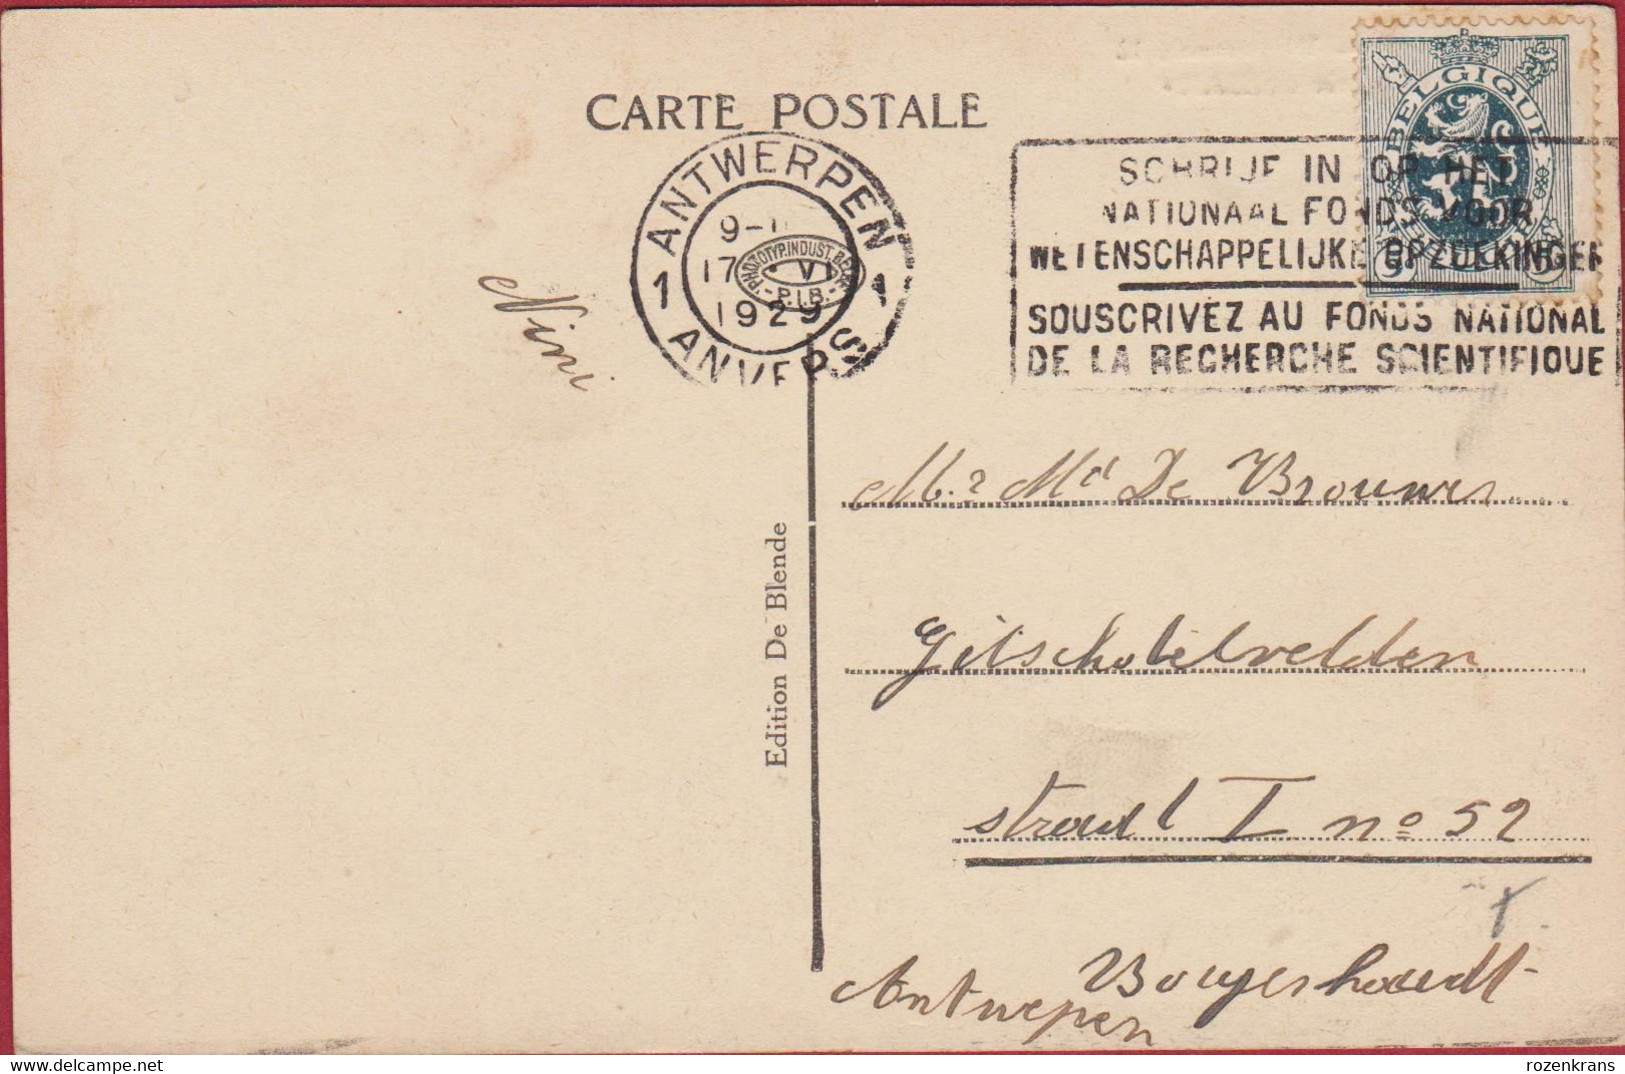 CARTE POSTALE
BELGIQUE
5 5
ANTWERPEN
9-
17 VI
1929
1 1
ANVERS
PHOTOTYP. INDUST. BELGE
P.I.B.
SCHRIJF IN OP HET
NATIONAAL FONDS VOOR
WETENSCHAPPELIJKE OPZOEKINGEN
SOUSCRIVEZ AU FONDS NATIONAL
DE LA RECHERCHE SCIENTIFIQUE
Nini
Edition De Blende
M.r Md De Brouwer
Gitschotelvelden
straat I no 52
Borgerhoudt
Antwerpen
rozenkrans
delcampe.net